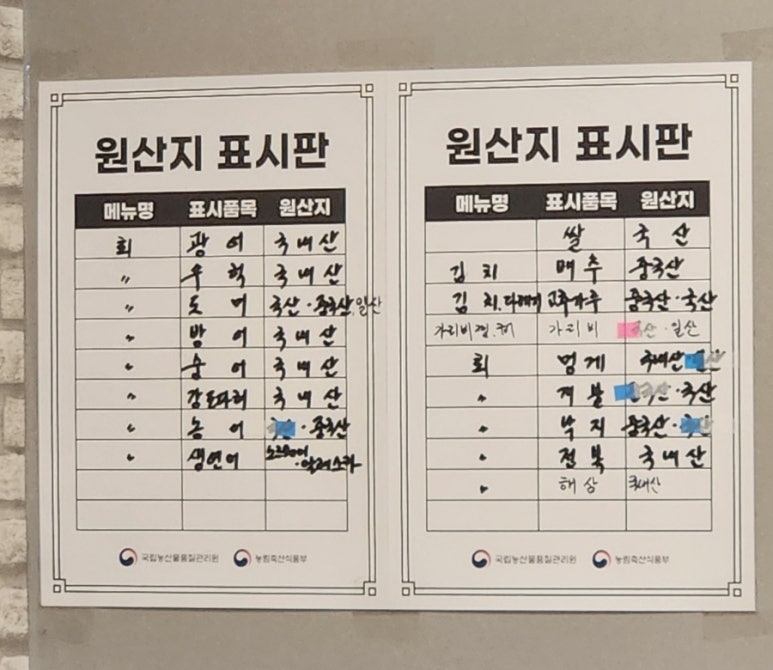 원산지 표시판
메뉴명 표시품목 원산지
회 광어 국내산
〃 우럭 국내산
〃 도미 국산·중국산,일산
〃 방어 국내산
〃 숭어 국내산
〃 강도다리 국내산
〃 농어 국산·중국산
〃 생연어 노르웨이·알래스카
국립농산물품질관리원 농림축산식품부
원산지 표시판
메뉴명 표시품목 원산지
쌀 국산
김치 배추 중국산
김치.다대기 고추가루 중국산·국산
가리비찜.회 가리비 산·일산
회 멍게 국내산
〃 개불 국산·국산
〃 낙지 중국산·
〃 전복 국내산
〃 해삼 국내산
국립농산물품질관리원 농림축산식품부